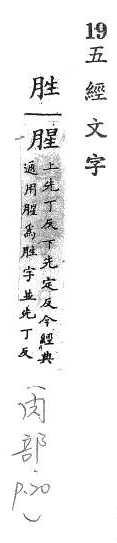 19五經文字
胜
腥
上先丁反下先定反今經典
通用腥爲胜字並先丁反
(肉部.p.20)